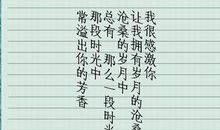 我很感激你
让我拥有岁月的沧
沧桑的岁月中
总有 那么一段时光
那段时光中
常溢出你的芳香